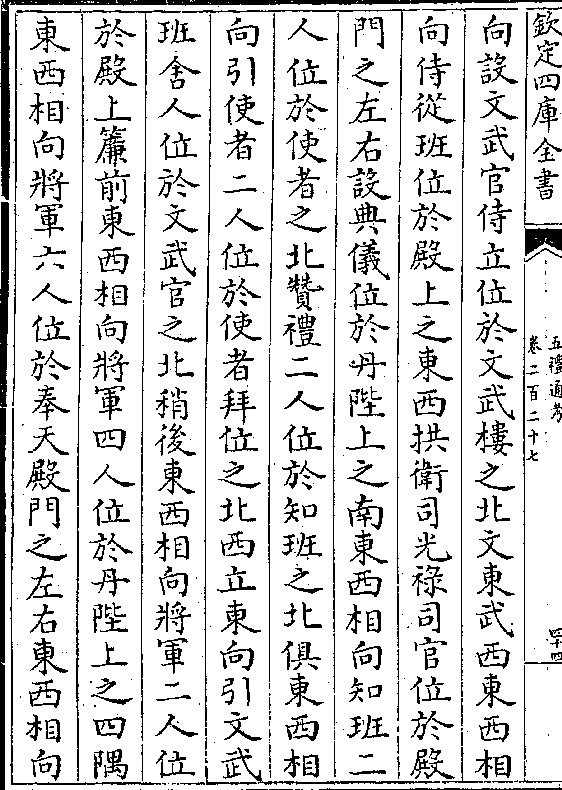 欽定四庫全書
五禮通考
卷二百二十七
四十四
向設文武官侍立位於文武樓之北文東武西東西相
向侍從班位於殿上之東西拱衛司光祿司官位於殿
門之左右設典儀位於丹陛上之南東西相向知班二
人位於使者之北贊禮二人位於知班之北俱東西相
向引使者二人位於使者拜位之北西立東向引文武
班舍人位於文武官之北稍後東西相向將軍二人位
於殿上簾前東西相向將軍四人位於丹陛上之四隅
東西相向將軍六人位於奉天殿門之左右東西相向